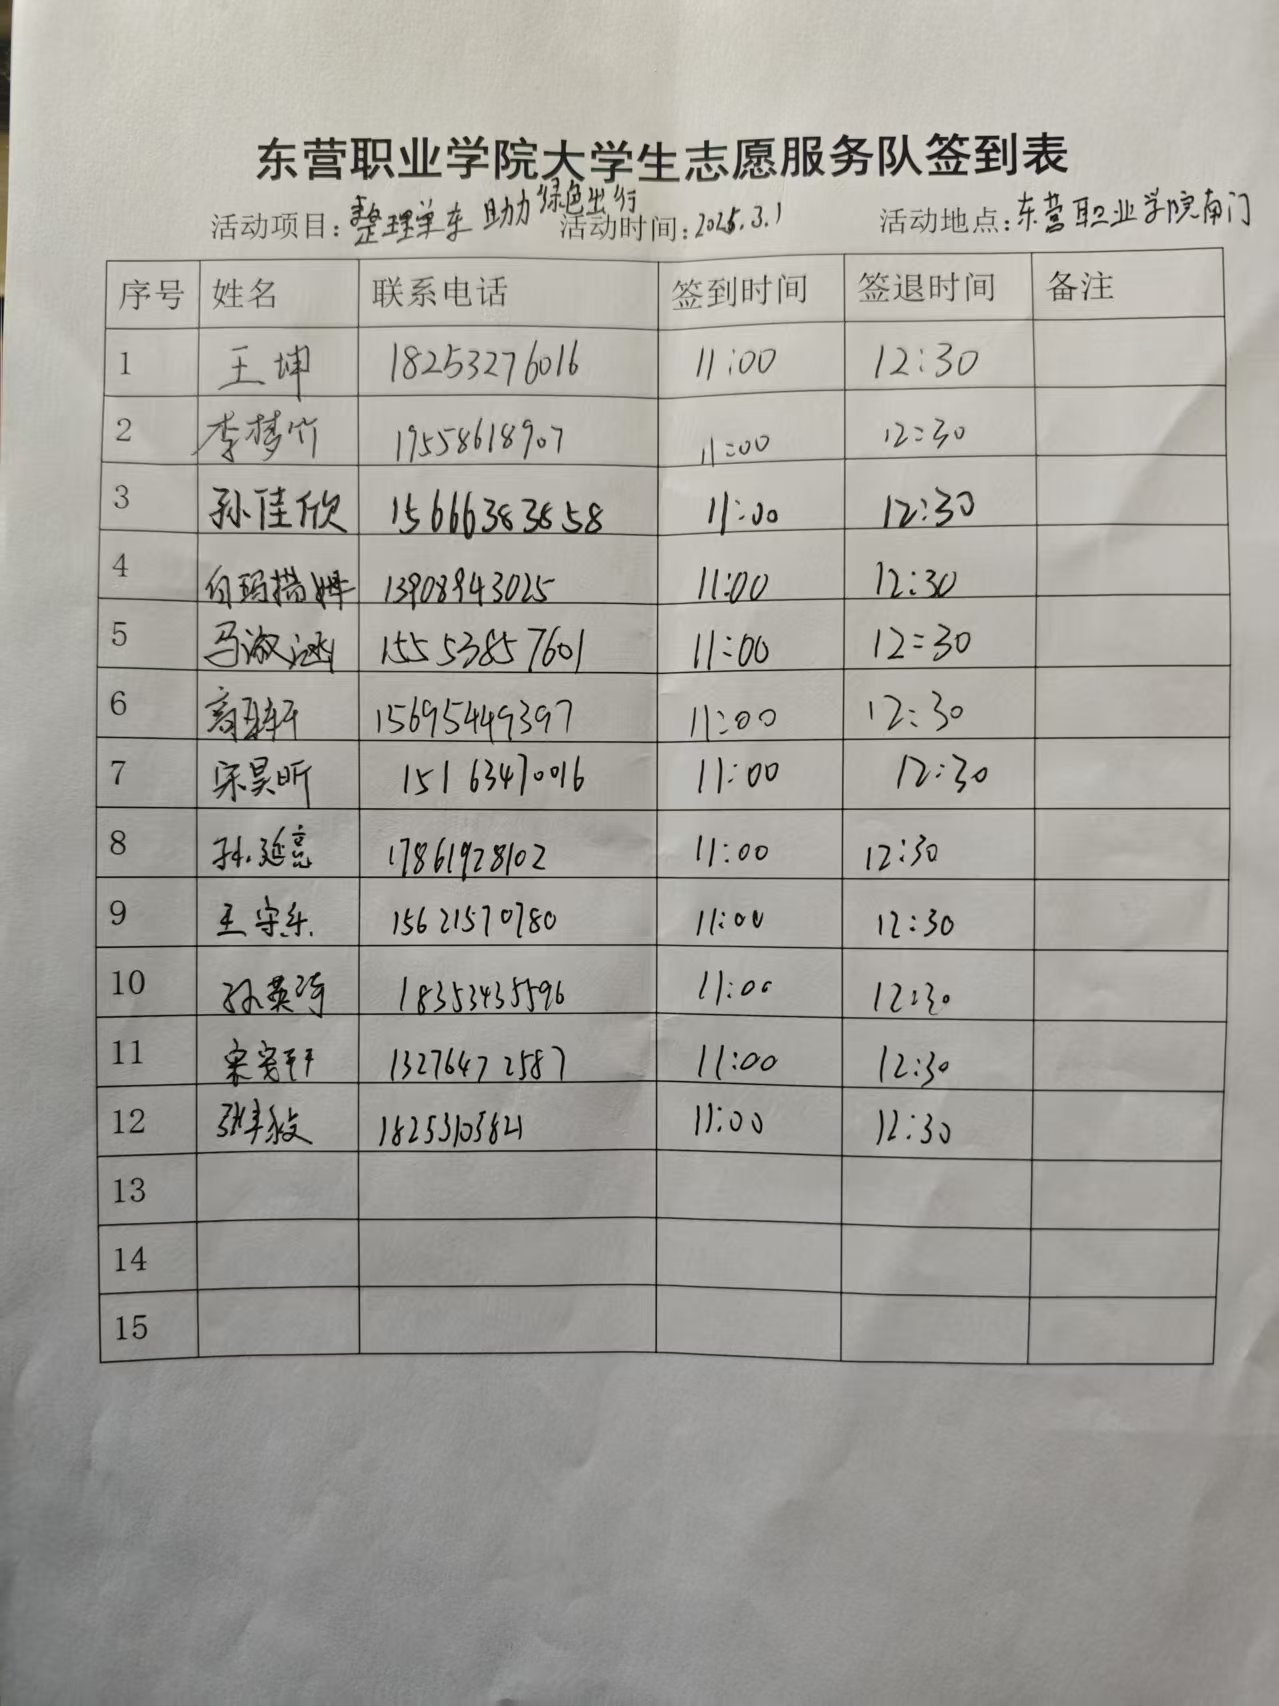 东营职业学院大学生志愿服务队签到表
活动项目：整理单车 助力绿色出行 活动时间：2025.3.1 活动地点：东营职业学院南门
序号 姓名 联系电话 签到时间 签退时间 备注
1 王坤 18253276016 11:00 12:30
2 李梦竹 19558618907 11:00 12:30
3 孙佳欣 15666383858 11:00 12:30
4 白玛措姆 13908943025 11:00 12:30
5 马淑涵 15553857601 11:00 12:30
6 15695449397 11:00 12:30
7 宋昊昕 15163470016 11:00 12:30
8 孙延亮 17861928102 11:00 12:30
9 王守乐 15621570780 11:00 12:30
10 孙英琦 18353435596 11:00 12:30
11 13276472587 11:00 12:30
12 18253105821 11:00 12:30
13
14
15